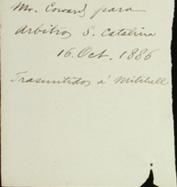 Mr. Coward para
arbitro S. Catalina
16. Oct. 1886
Trasmitidos á Mitchell